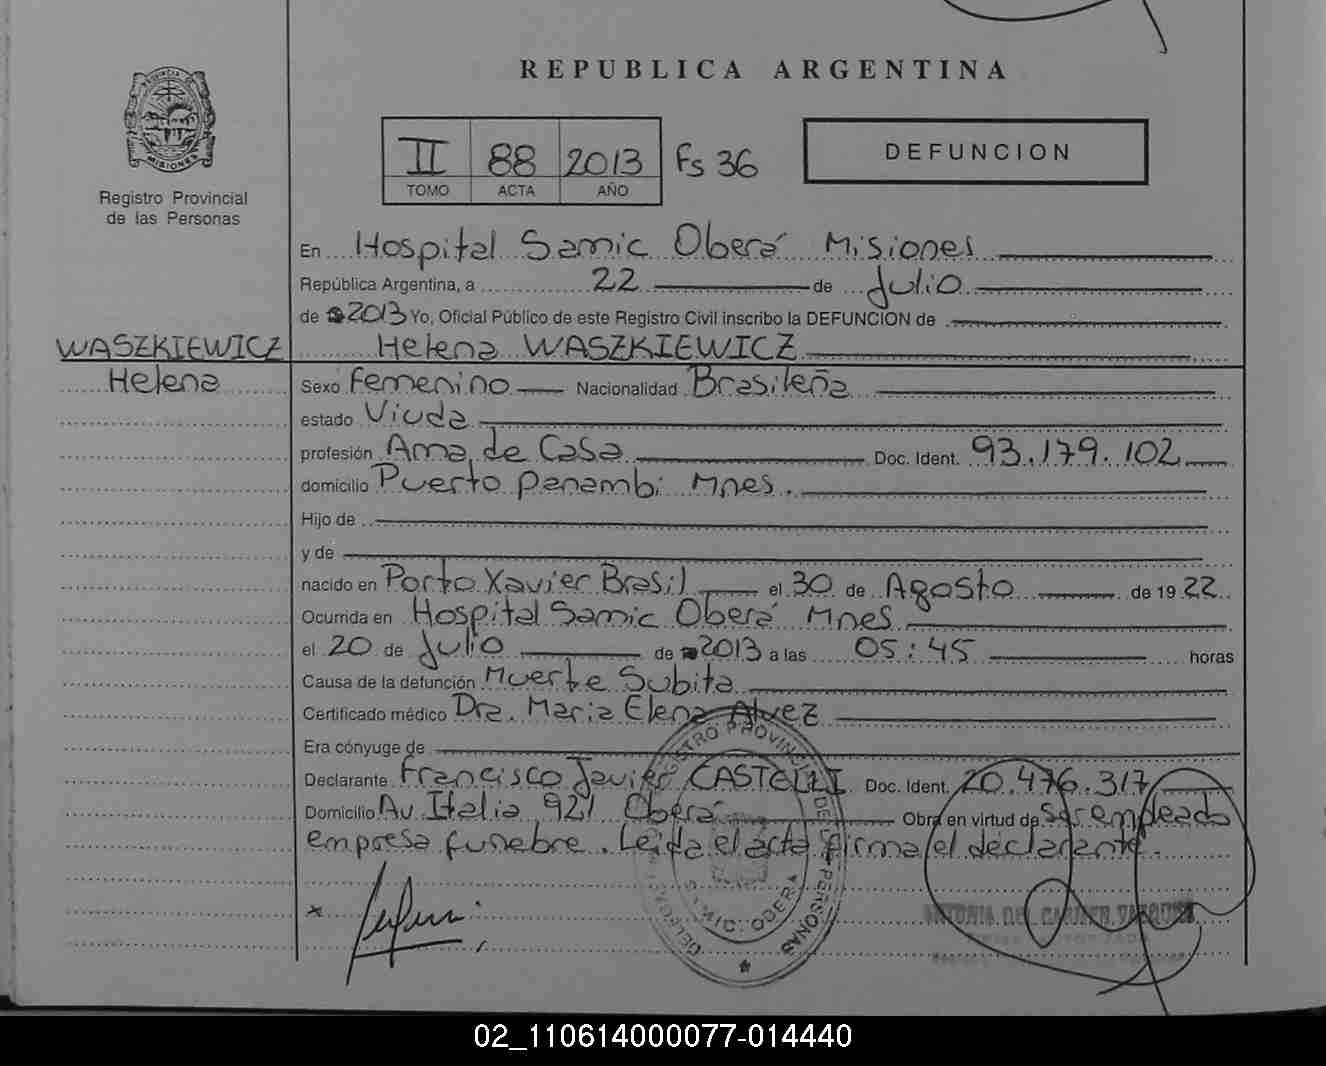 REPUBLICA ARGENTINA
II 88 2013 Fs 36
TOMO ACTA AÑO
DEFUNCION
MISIONES
Registro Provincial
de las Personas
En Hospital Samic Oberá Misiones
República Argentina, a 22 de Julio
de 2013 Yo, Oficial Público de este Registro Civil inscribo la DEFUNCION de
WASZKIEWICZ
Helena
Helena WASZKIEWICZ
Sexo Femenino Nacionalidad Brasileña
estado Viuda
profesión Ama de Casa Doc. Ident. 93.179.102
domicilio Puerto Panambi Mnes.
Hijo de
y de
nacido en Porto Xavier Brasil el 30 de Agosto de 19 22
Ocurrida en Hospital Samic Oberá Mnes
el 20 de Julio de 2013 a las 05:45 horas
Causa de la defunción Muerte Subita
Certificado médico Dra. Maria Elena Alvez
Era cónyuge de
Declarante Francisco Javier CASTELLI Doc. Ident. 20.476.317
Domicilio Av. Italia 921 Oberá Obra en virtud de ser empleado
empresa funebre. Leida el acta firma el declarante.
x
REGISTRO PROVINCIAL DE LAS PERSONAS
DELEGACION
SAMIC. OBERA
ANTONIA DEL CARMEN
02_110614000077-014440